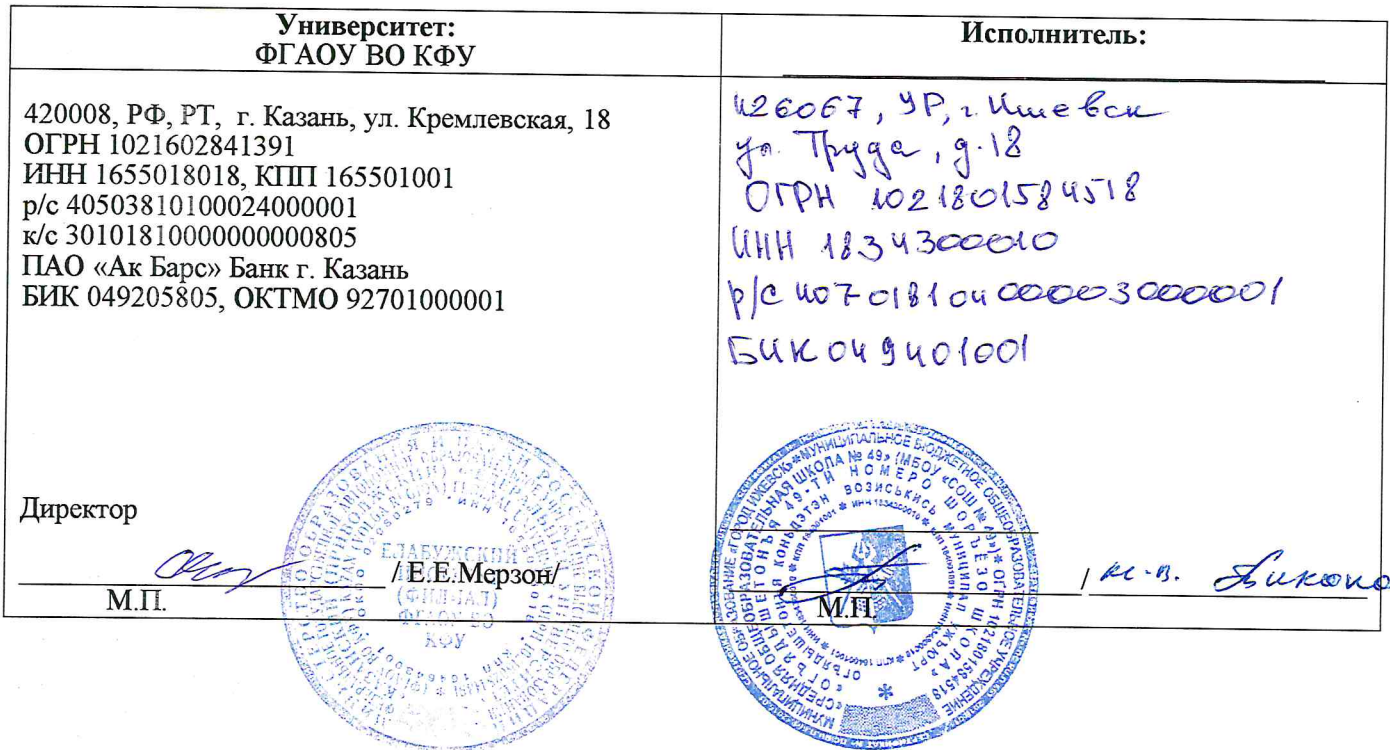 Университет:
ФГАОУ ВО КФУ
420008, РФ, РТ, г. Казань, ул. Кремлевская, 18
ОГРН 1021602841391
ИНН 1655018018, КПП 165501001
р/с 40503810100024000001
к/с 30101810000000000805
ПАО «Ак Барс» Банк г. Казань
БИК 049205805, ОКТМО 92701000001
Директор
/ Е.Е.Мерзон/
М.П.
ЕЛАБУЖСКИЙ
(ФИЛИАЛ)
ФГАОУ ВО
КФУ
Исполнитель:
426067, УР, г. Ижевск
ул. Труда, д. 18
ОГРН 1021801584518
ИНН 1834300010
р/с 40701810400003000001
БИК 049401001
МУНИЦИПАЛЬНОЕ БЮДЖЕТНОЕ ОБЩЕОБРАЗОВАТЕЛЬНОЕ УЧРЕЖДЕНИЕ
«СРЕДНЯЯ ОБЩЕОБРАЗОВАТЕЛЬНАЯ ШКОЛА № 49» (МБОУ «СОШ № 49») * ОГРН 1021801584518
/
М.П.